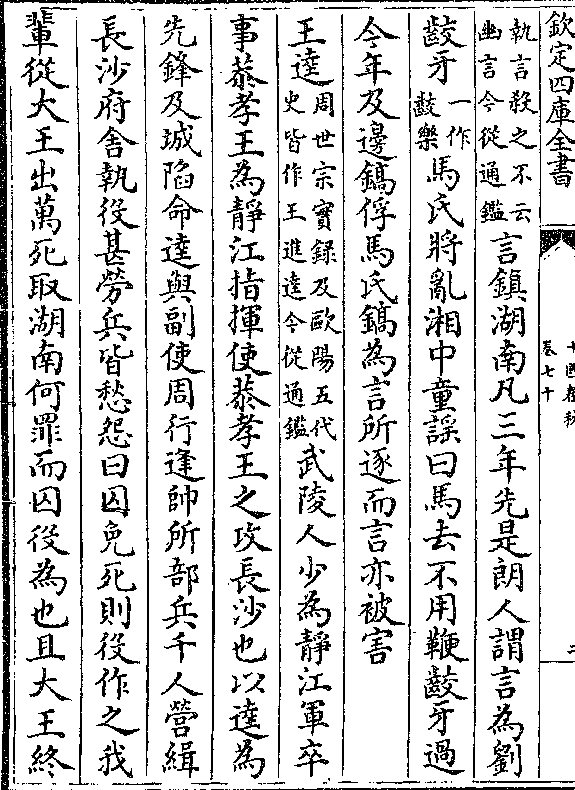 欽定四庫全書
十國春秋
卷七十
二
執言殺之不云
幽言今從通鑑
言鎮湖南凡三年先是朗人謂言為劉
齩牙
一作
齩樂
馬氏將亂湘中童謡曰馬去不用鞭齩牙過
今年及邊鎬俘馬氏鎬為言所逐而言亦被害
王逵
周世宗實録及歐陽五代
史皆作王進逵今從通鑑
武陵人少為靜江軍卒
事恭孝王為靜江指揮使恭孝王之攻長沙也以逵為
先鋒及城陷命逵與副使周行逢帥所部兵千人營緝
長沙府舍執役甚勞兵皆愁怨曰囚免死則役作之我
輩從大王出萬死取湖南何罪而囚役為也且大王終